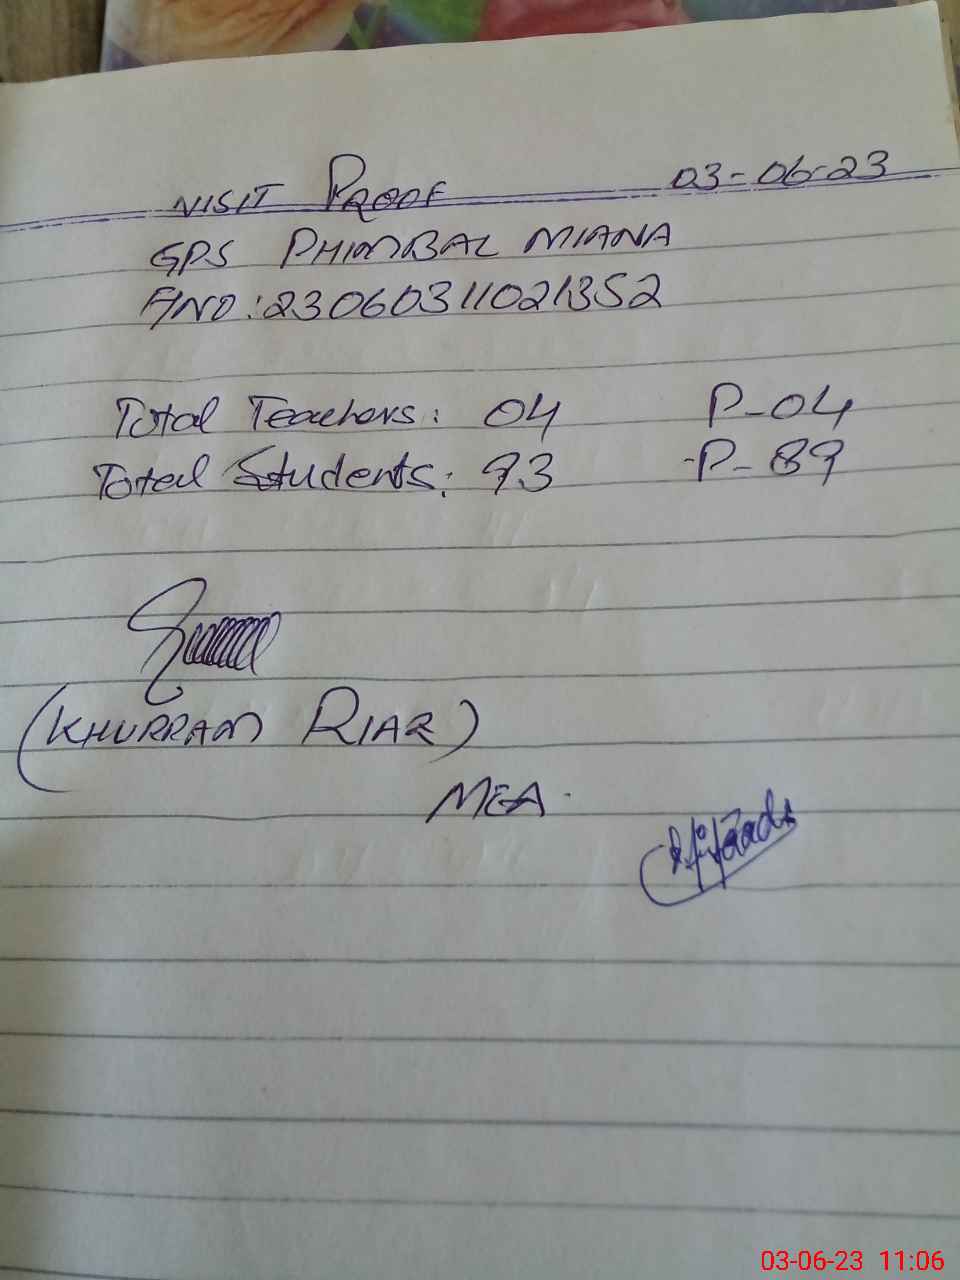 VISIT PROOF 03-06-23
GPS PHIMBAL MIANA
F/NO: 23060311021352
Total Teachers: 04 P-04
Total Students: 93 P-89
(KHURRAM RIAZ)
MEA.
03-06-23 11:06